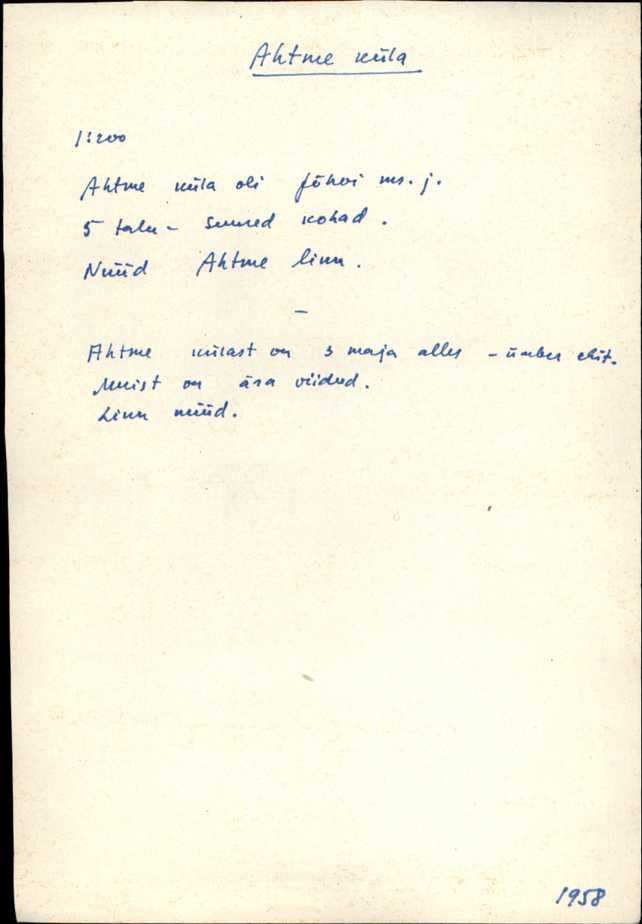 Ahtme küla
1:200
Ahtme küla oli Jõhvi ms. j.
5 talu - suured kohad.
Nüüd Ahtme linn.
-
Ahtme külast on 3 maja alles - ümber ehit.
Muist on ära viidud.
Linn nüüd.
1958